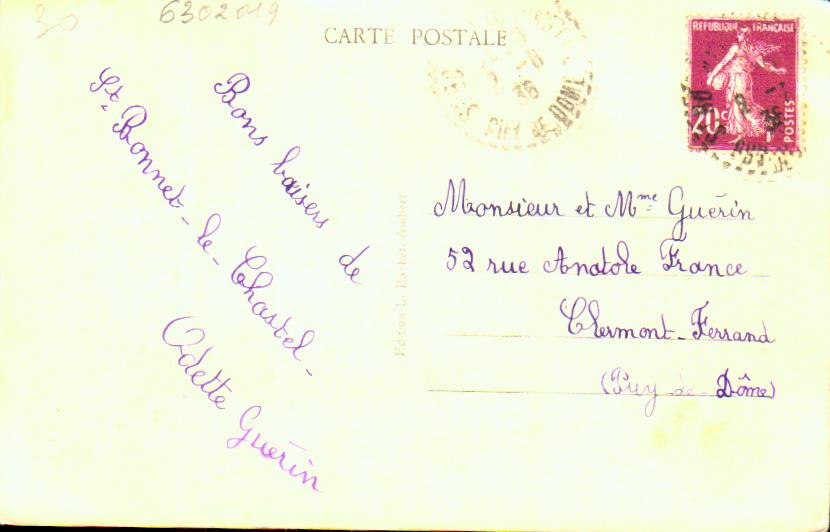 30
6302019
CARTE POSTALE
REPUBLIQUE FRANÇAISE
20c
POSTES
PUY DE DOME
Bons baisers de
St Bonnet-le-Chastel-
Odette Guérin
Edition L. Bachet, Ambert
Monsieur et Mme Guérin
52 rue Anatole France
Clermont-Ferrand
(Puy-de-Dôme)